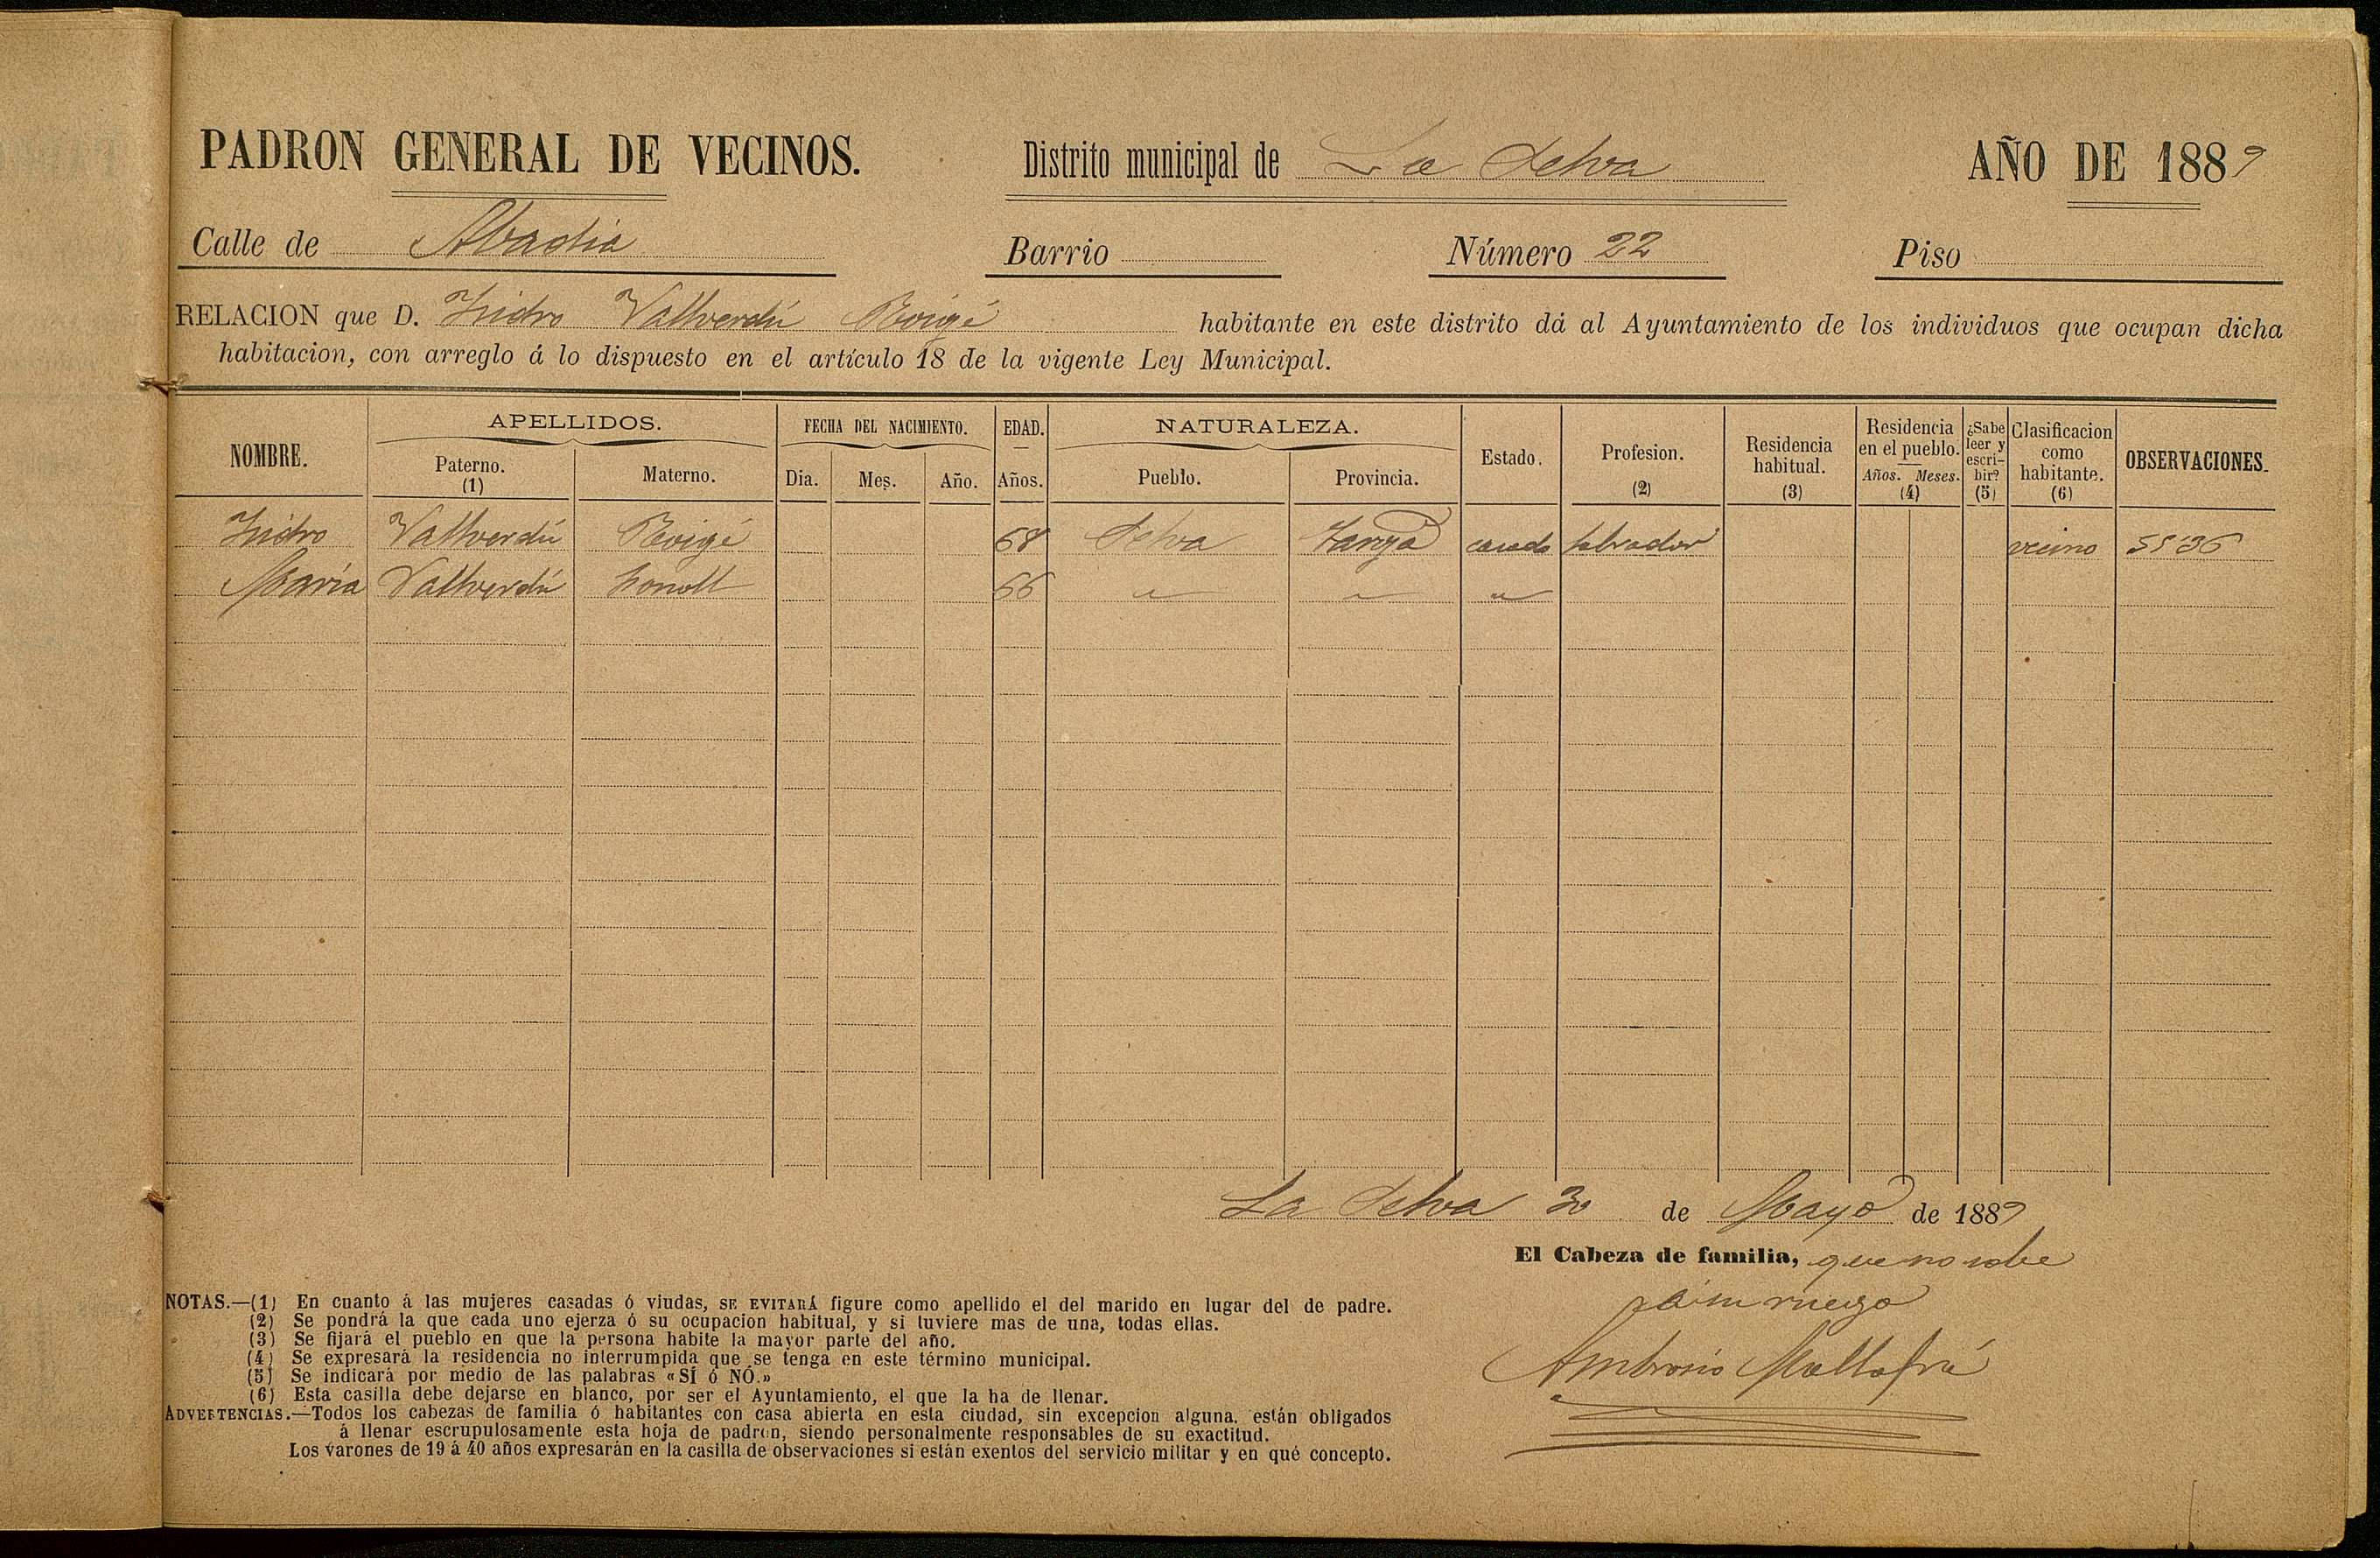 PADRON GENERAL DE VECINOS. Distrito municipal de La Selva AÑO DE 1889
Calle de Abadia Barrio Número 22 Piso
RELACION que D. Isidro Vallverdú Roigé habitante en este distrito dá al Ayuntamiento de los individuos que ocupan dicha
habitacion, con arreglo á lo dispuesto en el artículo 18 de la vigente Ley Municipal.
NOMBRE. APELLIDOS. FECHA DEL NACIMIENTO. EDAD. NATURALEZA. Estado. Profesion. (2) Residencia habitual. (3) Residencia en el pueblo. Años. Meses. (4) ¿Sabe leer y escribir? (5) Clasificacion como habitante. (6) OBSERVACIONES.
Paterno. (1) Materno. Dia. Mes. Año. Años. Pueblo. Provincia.
Isidro Vallverdú Roigé 68 Selva Tarrgª casado labrador vecino 55'36
María Vallverdú 66 " " "
La Selva 30 de Mayo de 1889
El Cabeza de familia, que no sabe
ruego
Ambrosio Mallafré
NOTAS.—(1) En cuanto á las mujeres casadas ó viudas, SE EVITARÁ figure como apellido el del marido en lugar del de padre.
(2) Se pondrá la que cada uno ejerza ó su ocupacion habitual, y si tuviere mas de una, todas ellas.
(3) Se fijará el pueblo en que la persona habite la mayor parte del año.
(4) Se expresará la residencia no interrumpida que se tenga en este término municipal.
(5) Se indicará por medio de las palabras «SÍ ó NÓ.»
(6) Esta casilla debe dejarse en blanco, por ser el Ayuntamiento, el que la ha de llenar.
ADVERTENCIAS.—Todos los cabezas de familia ó habitantes con casa abierta en esta ciudad, sin excepcion alguna, están obligados
á llenar escrupulosamente esta hoja de padron, siendo personalmente responsables de su exactitud.
Los varones de 19 á 40 años expresarán en la casilla de observaciones si están exentos del servicio militar y en qué concepto.